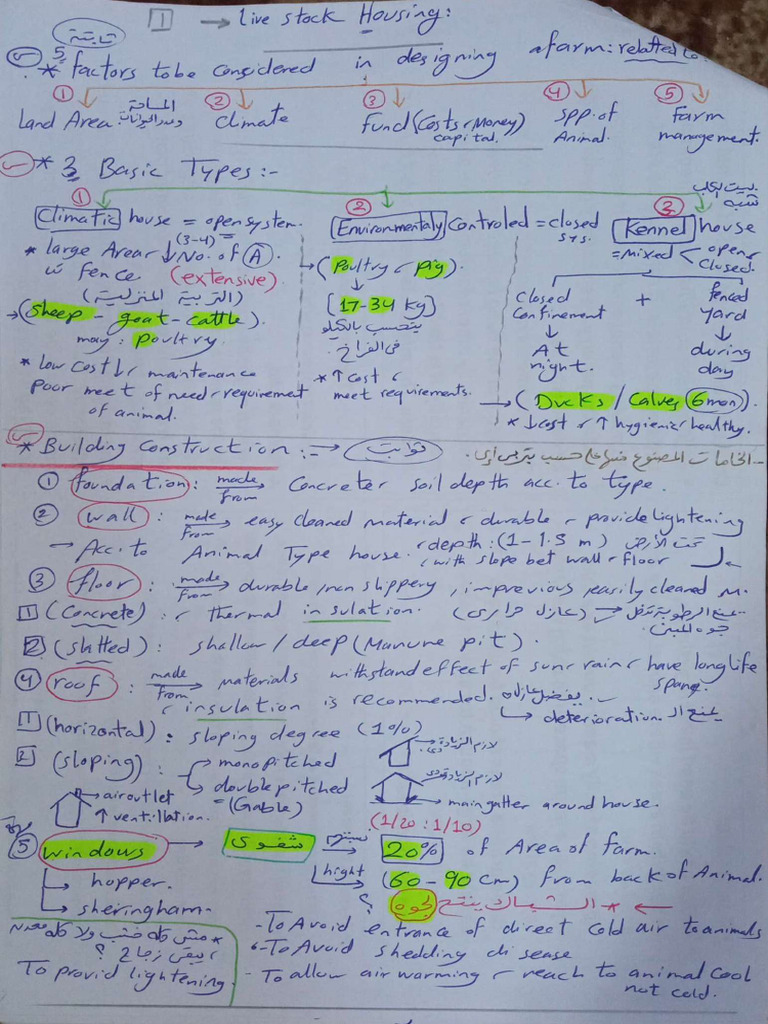 1 → Live stock Housing:
ثابتة
5 * Factors to be Considered in designing a farm: related to:
① Land Area المساحة وعدد الحيوانات ② Climate ③ Fund (Costs, Money) capital. ④ spp. of Animal. ⑤ Farm management.
* 3 Basic Types:-
① Climatic house = open system.
* large Area, ↓ No. of Ⓐ (3-4)
fence (extensive)
(التربية المنزلية)
→ (sheep - goat - cattle).
may: poultry.
* low cost, ↓ maintenance
poor meet of need, requirement of animal.
② Environmentaly Controled = closed sys.
→ (Poultry, pig).
[17-34 kg]
يتحسب بالكيلو
فى الفراخ
* ↑ Cost,
meet requirements.
بيت الكلب
شبه
③ Kennel house
= mixed < open, Closed.
Closed Confinement + fenced yard
At night. during day
→ (Ducks / Calves (6mon)).
* ↓ cost, ↑ hygienic, healthy.
* Building Construction:- → ثوابت
الخامات المصنوع منها على حسب
① foundation: made from → Concrete, soil depth acc. to type.
② wall: made from → easy cleaned material, durable, provide lightening
→ Acc. to Animal Type house. , depth: (1-1.5 m) تحت الأرض
, with slope bet wall, floor
③ floor: made from → durable, non slippery, imprevious easily cleaned m.
1 (Concrete): , thermal insulation. (عازل حرارى) → يمنع الرطوبة تدخل
جوه المبنى
2 (slatted): shallow / deep (Manure pit).
④ roof: made from → materials withstand effect of sun, rain, have long life span.
, insulation is recommended. يفضل عازل
→ deterioration. يمنع الـ
1 (horizontal): sloping degree (1%)
2 (sloping): monopitched لازم الزيادة دى
double pitched = (Gable) لازم الزيادة دى
→ air outlet
↑ ventillation.
→ main gatter around house.
(1/20 : 1/10)
⑤ windows → شفوى → 20% of Area of farm.
hight → (60 - 90 cm) from back of Animal.
→ hopper.
→ sheringham.
* الشباك بيتفتح لجوه ؟ ←
- To Avoid entrance of direct cold air to animals
- To Avoid shedding disease
- To allow air warming, reach to animal Cool not cold.
* مش كله خشب ولا كله معدن
يبقى زجاج ؟
To provid lightening.